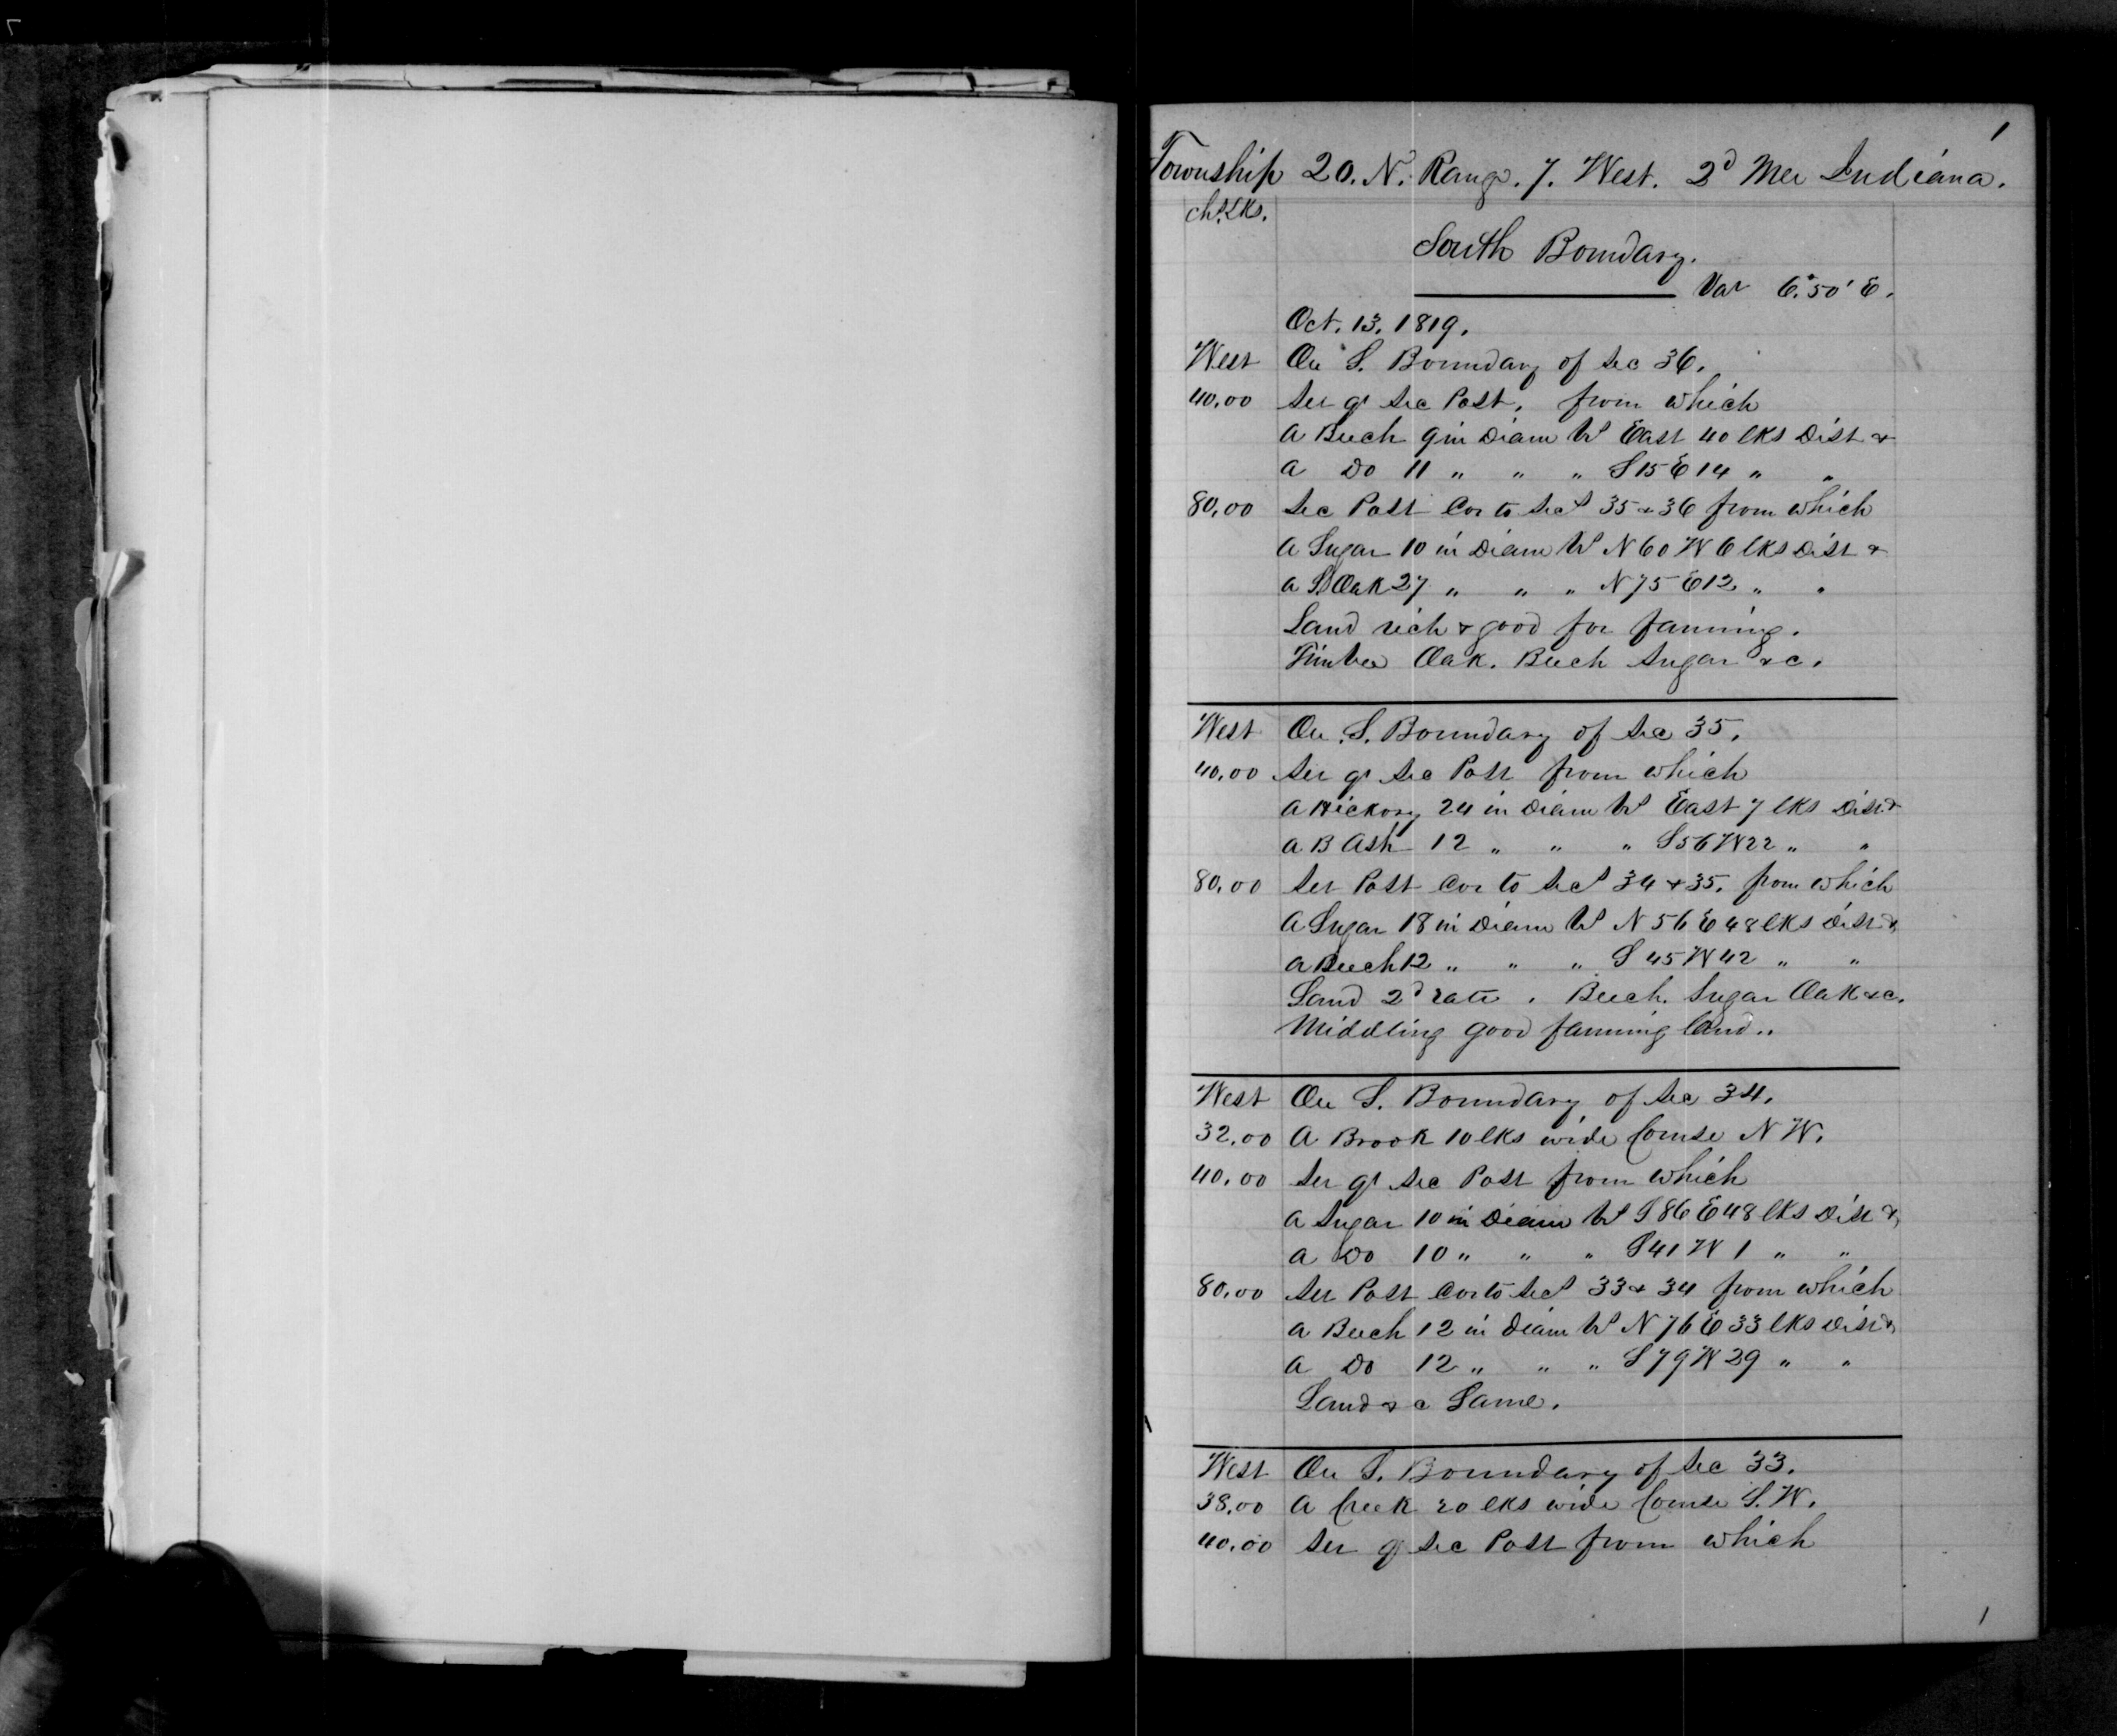 1
Township 20. N. Range. 7. West. 2d Mer Indiana.
chs. lks.
South Boundary.
Var 6°.50' E.
Oct. 13. 1819.
West On S. Boundary of Sec 36.
40.00 Set qr Sec Post. from which
A Beech 9 in Diam brs East 40 lks Dist &
a Do 11 " " " S 15 E 14 " "
80.00 Sec Post Cor to Secs 35 & 36 from which
A Sugar 10 in Diam brs N 60 W 6 lks Dist &
a B Oak 27 " " " N 75 E 12 " "
Land rich & good for farming.
Timber Oak. Beech Sugar &c.
West On S. Boundary of Sec 35.
40.00 Set qr Sec Post from which
A Hickory 24 in Diam brs East 7 lks Dist &
a B Ash 12 " " " S 56 W 22 " "
80.00 Set Post Cor to Secs 34 & 35. from which
A Sugar 18 in Diam brs N 56 E 48 lks Dist &
a Beech 12 " " " S 45 W 42 " "
Land 2d rate. Beech. Sugar Oak &c.
Middling good farming land..
West On S. Boundary of Sec 34.
32.00 A Brook 10 lks wide Course N W.
40.00 Set qr Sec Post from which
a Sugar 10 in Diam brs S 86 E 48 lks Dist &
a Do 10 " " " S 41 W 1 " "
80.00 Set Post Cor to Secs 33 & 34 from which
a Beech 12 in Diam brs N 76 E 33 lks Dist &
a Do 12 " " " S 79 W 29 " "
Land &c Same.
West On S. Boundary of Sec 33.
38.00 A Creek 20 lks wide Course S. W.
40.00 Set qr Sec Post from which
1